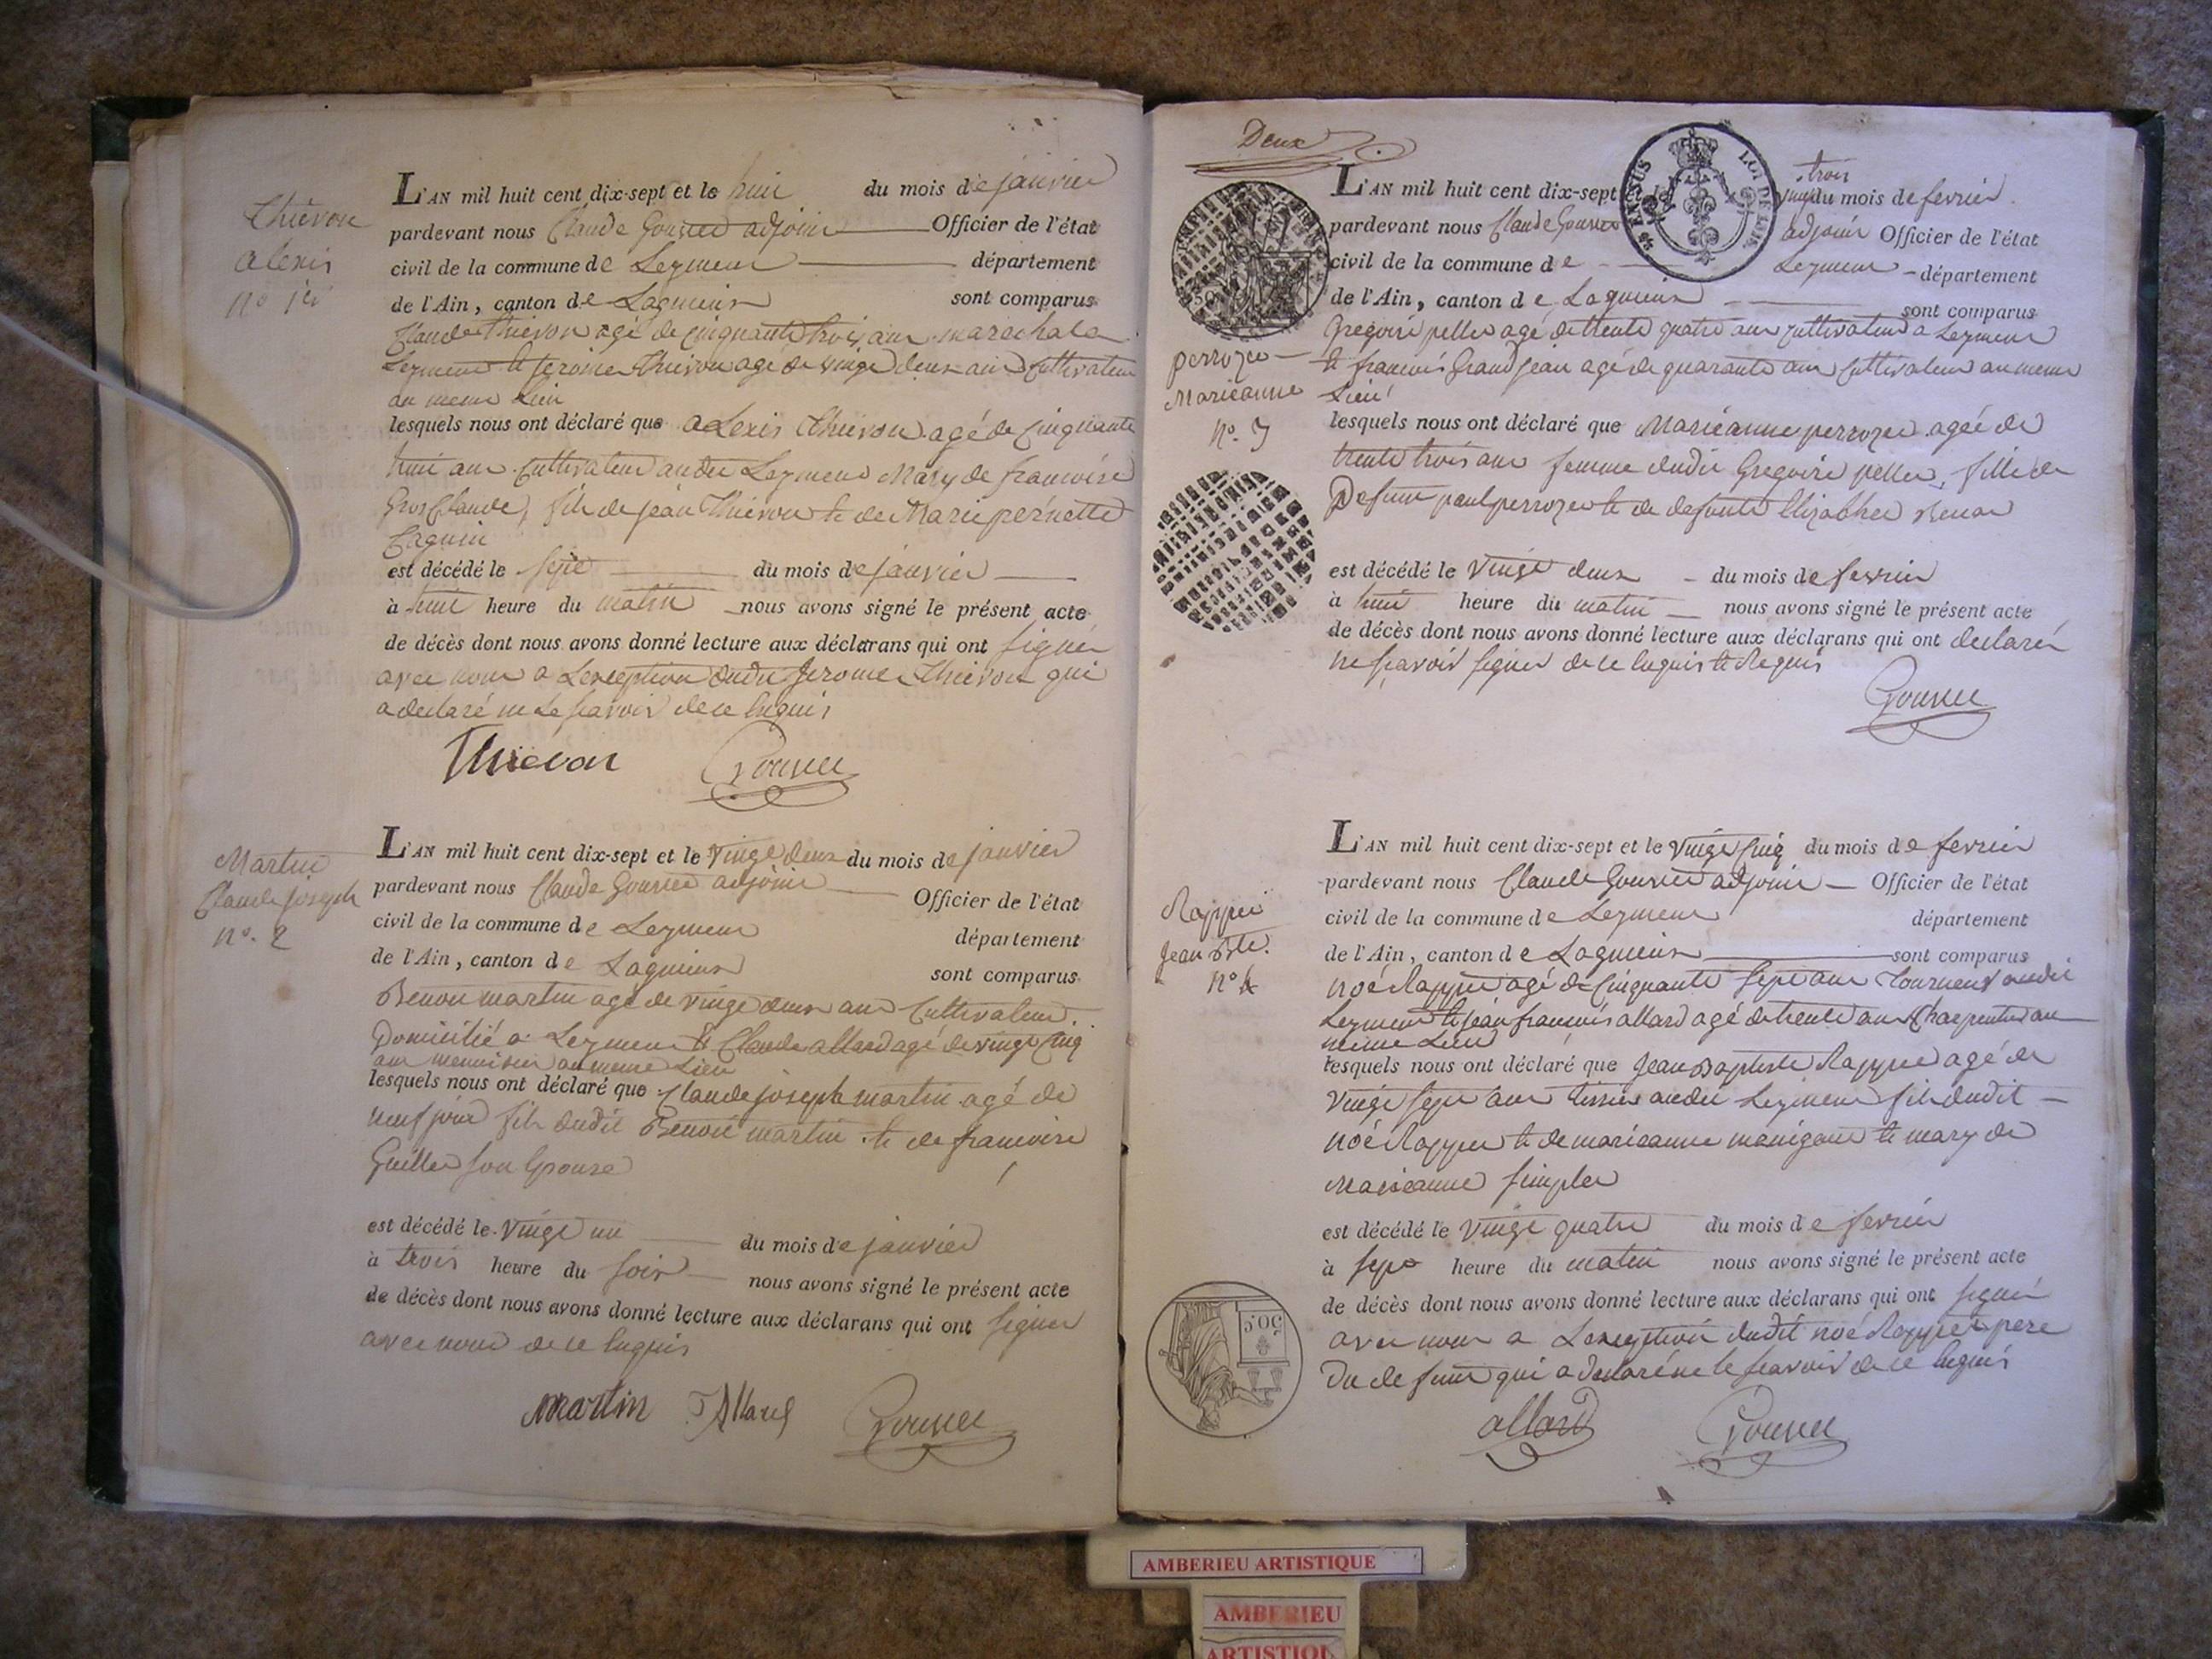 Thievon
alexis
n° 1er
L'AN mil huit cent dix-sept et le huit du mois de janvier
pardevant nous Claude Gourra adjoint Officier de l'état
civil de la commune de Leyment département
de l'Ain, canton de Lagnieux sont comparus
Claude Thievon agé de cinquante trois ans marechal a
Leyment et jerome Thievon agé de vingt deux ans cultivateur
au meme Lieu
lesquels nous ont déclaré que alexis Thievon agé de cinquante
huit ans cultivateur audit Leyment Mary de francoise
Gros Claude, fils de jean Thievon et de Marie pernette
est décédé le sept du mois de janvier
à huit heure du matin nous avons signé le présent acte
de décès dont nous avons donné lecture aux déclarans qui ont signer
avec nous a Lexception dudit jerome Thievon qui
a declaré ne Le scavoir de ce Enquis
Thievon
Martin
Claude joseph
n°. 2
L'AN mil huit cent dix-sept et le Vingt deux du mois de janvier
pardevant nous Claude adjoint Officier de l'état
civil de la commune de Leyment département
de l'Ain, canton de Lagnieux sont comparus
Benoit martin agé de vingt deux ans Cultivateur
Domicilié a Leyment et Claude allard agé de vingt Cinq
ans menuisier au meme Lieu
lesquels nous ont déclaré que Claude joseph martin agé de
neuf jour fils dudit Benoit martin et de francoise
son Epouse
est décédé le Vingt un du mois de janvier
à trois heure du soir nous avons signé le présent acte
de décès dont nous avons donné lecture aux déclarans qui ont signer
avec nous de ce Enquis
martin Allard
Deux
TIMBRE ROYAL
EN SUS
LOI DE 1816
perrozet
Marieanne
n°. 3
L'AN mil huit cent dix-sept et le trois du mois de fevrier
pardevant nous Claude adjoint Officier de l'état
civil de la commune de Leyment département
de l'Ain, canton de Lagnieux sont comparus
Gregoire pellet agé de trente quatre ans cultivateur a Leyment
et francois Grandjean agé de quarante ans cultivateur au meme
Lieu
lesquels nous ont déclaré que Marieanne perrozet agée de
trente trois ans femme dudit Gregoire pellet, fille de
Defunt paul perrozet et de defunte Elizabhet
est décédé le Vingt deux du mois de fevrier
à huit heure du matin nous avons signé le présent acte
de décès dont nous avons donné lecture aux déclarans qui ont declarer
ne scavoir signer de ce Enquis et Requis
Rappet
Jean Bte.
n° 4
L'AN mil huit cent dix-sept et le Vingt Cinq du mois de fevrier
pardevant nous Claude adjoint Officier de l'état
civil de la commune de Leyment département
de l'Ain, canton de Lagnieux sont comparus
noé Rappet agé de Cinquante sept ans Tourneur audit
Leyment et jean francois allard agé de trente ans Charpentier au
meme Lieu
lesquels nous ont déclaré que Jean Baptiste Rappet agé de
vingt sept ans tissier audit Leyment fils dudit
noé Rappet et de marieanne et mary de
Marieanne simplet
est décédé le Vingt quatre du mois de fevrier
à sept heure du matin nous avons signé le présent acte
de décès dont nous avons donné lecture aux déclarans qui ont signer
avec nous a Lexception dudit noé Rappet pere
Du defunt qui a declaré ne le scavoir de ce Enquis
50 C
allard
AMBERIEU ARTISTIQUE
AMBERIEU
ARTISTIQU